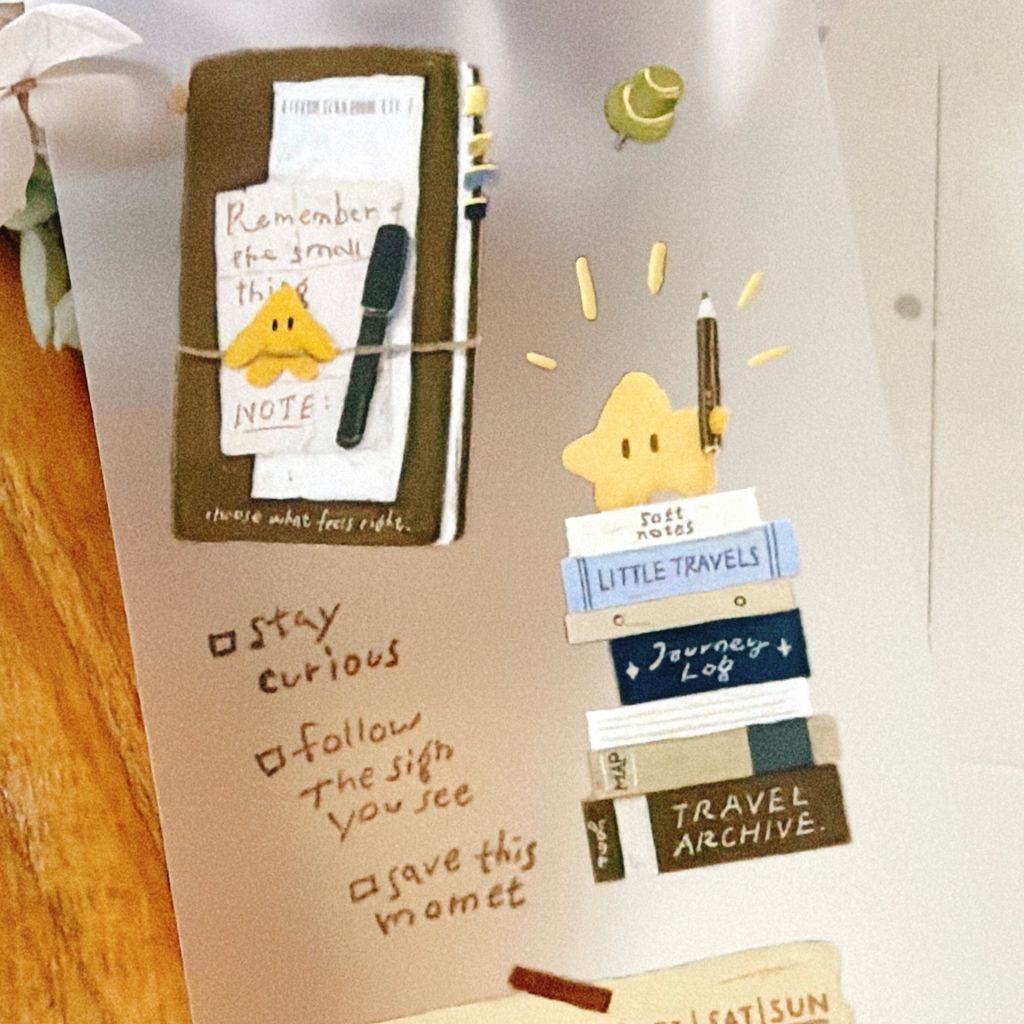 Remember
the small
thing
NOTE:
choose what feels right.
soft
notes
LITTLE TRAVELS
Journey
Log
MAP
TRAVEL
ARCHIVE.
stay
curious
follow
the sign
you see
save this
momet
SAT|SUN